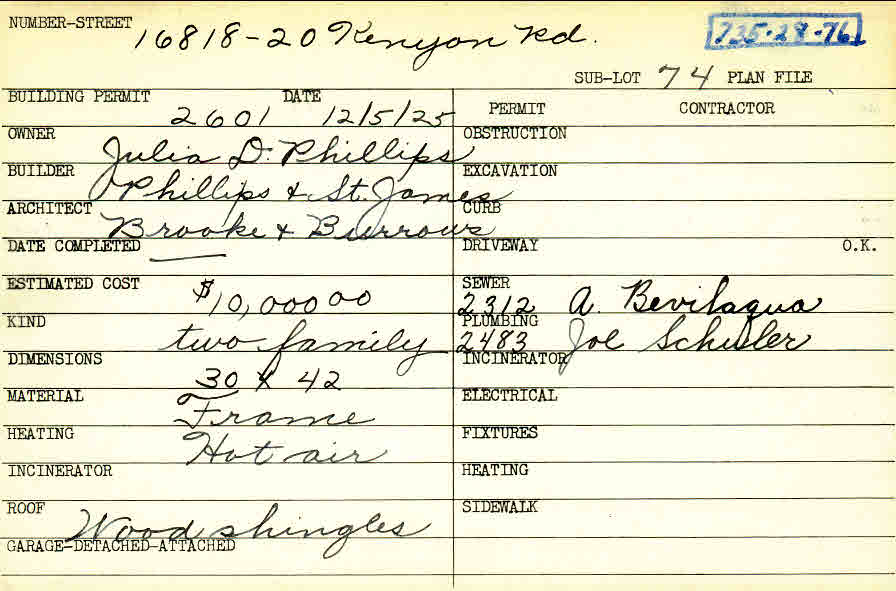 NUMBER-STREET 16818-20 Kenyon Rd. 735-29-76
SUB-LOT 74 PLAN FILE
BUILDING PERMIT 2601 DATE 12/5/25
OWNER Julia D. Phillips
BUILDER Phillips & St. James
ARCHITECT Brooke & Burrows
DATE COMPLETED —
ESTIMATED COST $10,000 00
KIND two family
DIMENSIONS 30 x 42
MATERIAL Frame
HEATING Hot air
INCINERATOR
ROOF Wood shingles
GARAGE-DETACHED-ATTACHED
PERMIT CONTRACTOR
OBSTRUCTION
EXCAVATION
CURB
DRIVEWAY O.K.
SEWER 2312 A. Bevilaqua
PLUMBING 2483 Joe
INCINERATOR
ELECTRICAL
FIXTURES
HEATING
SIDEWALK